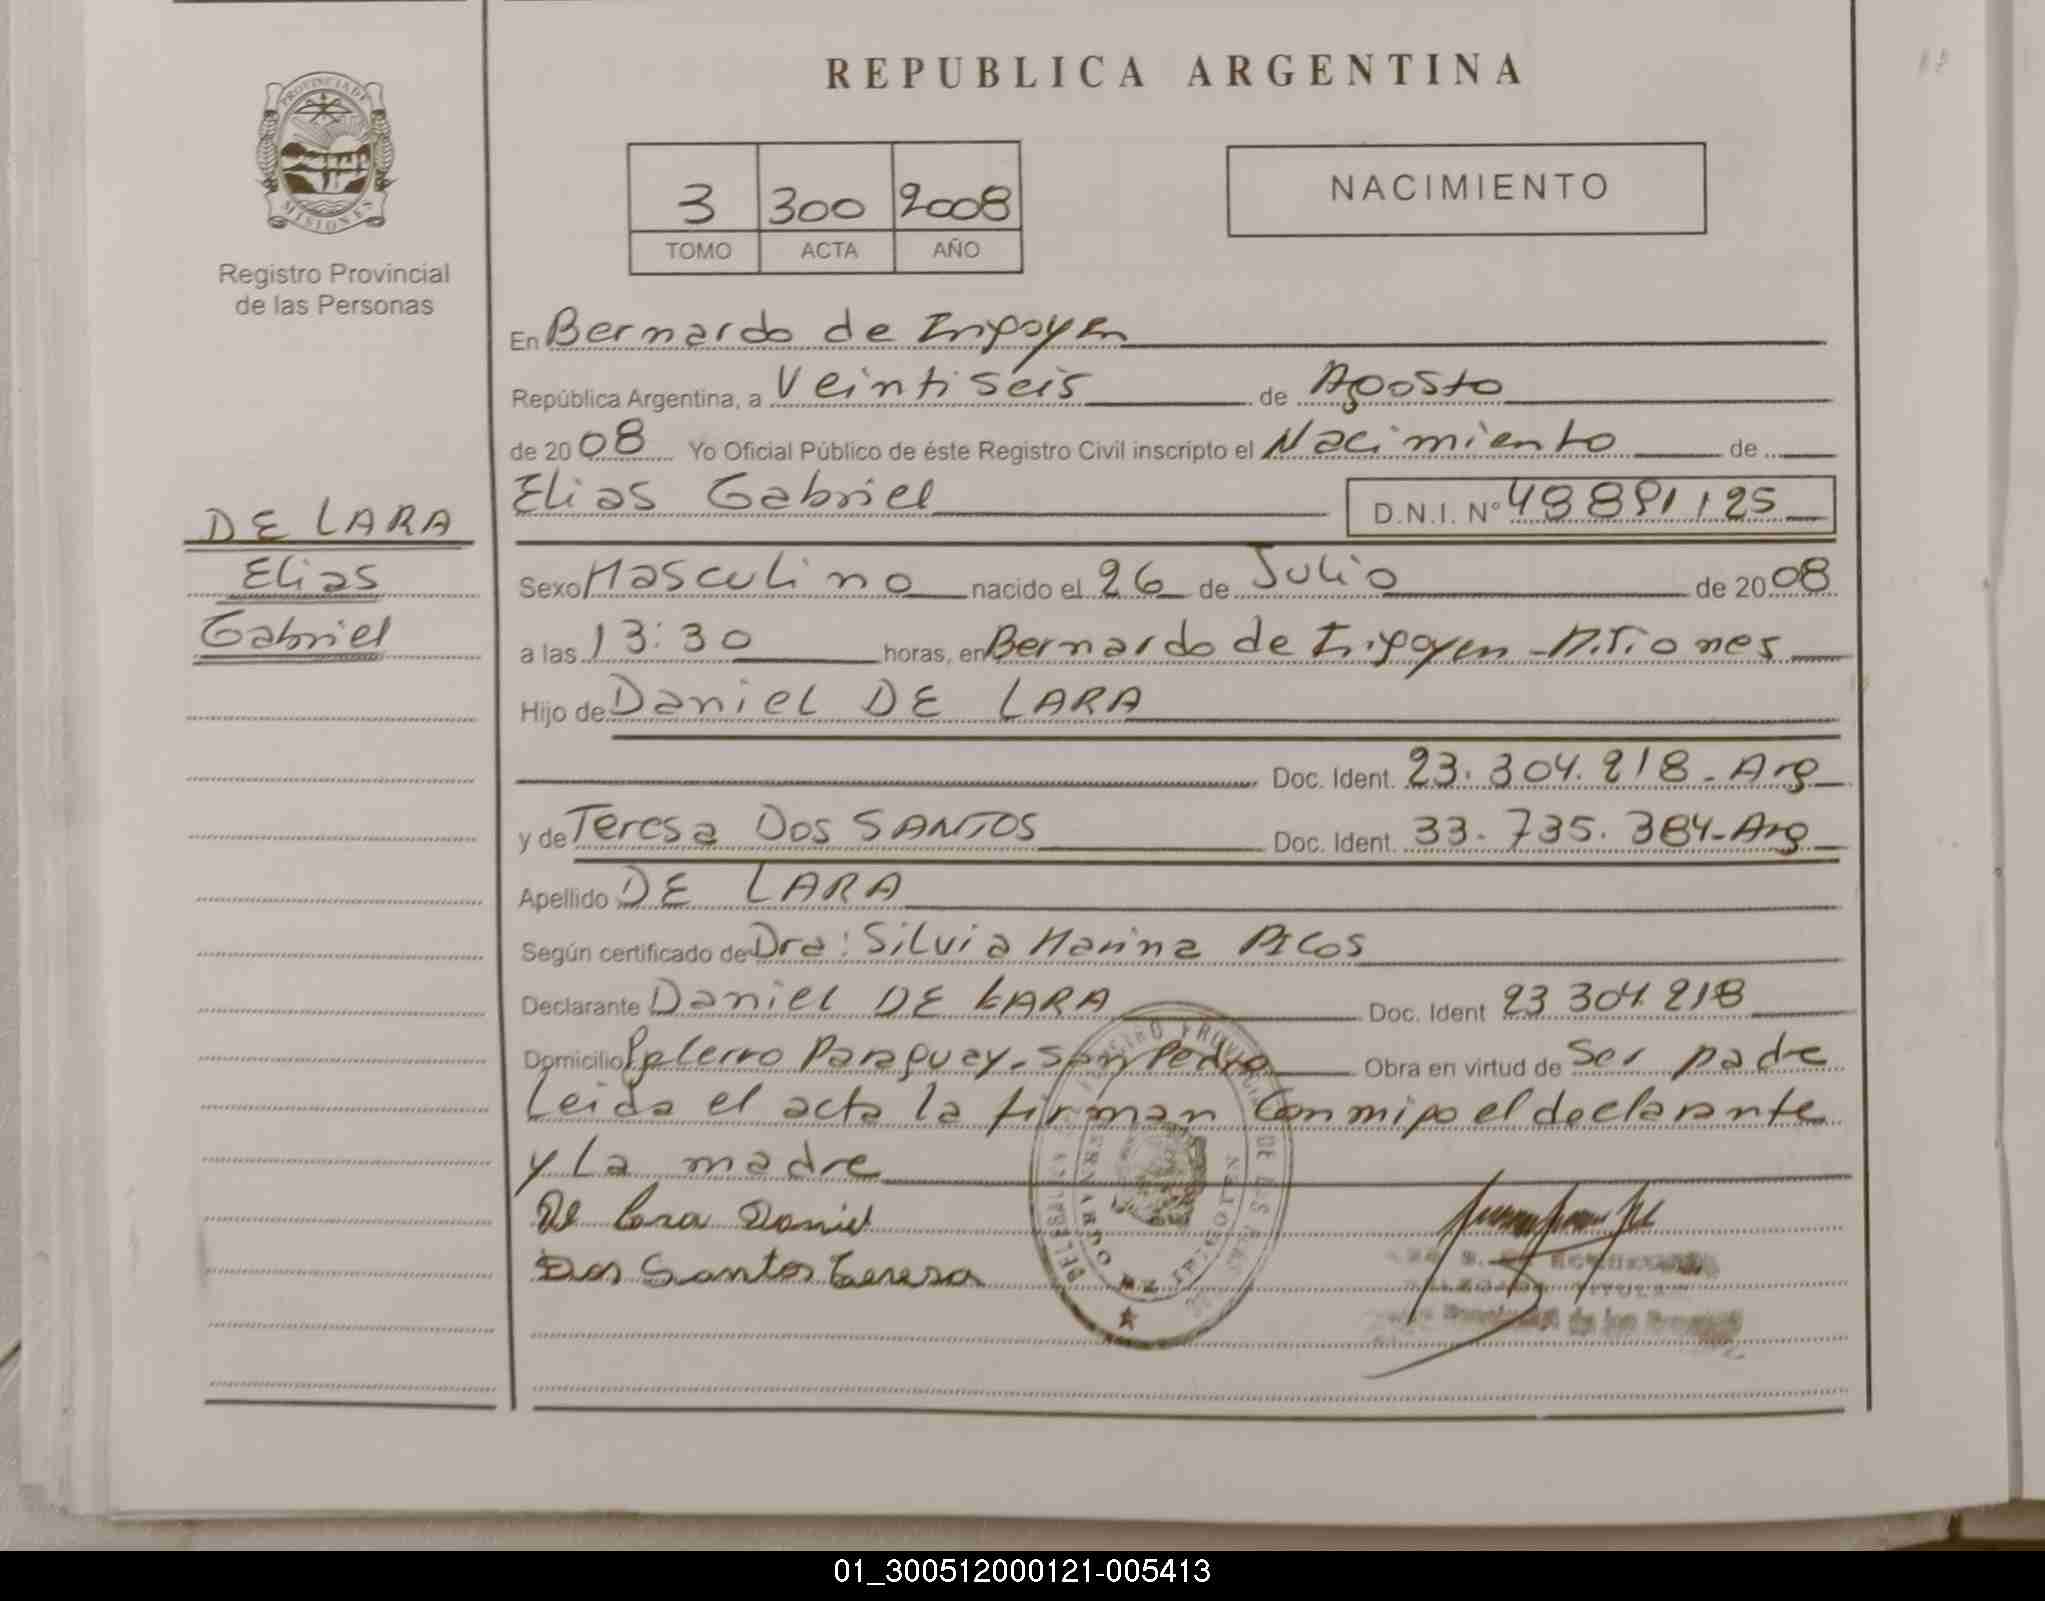 REPUBLICA ARGENTINA
PROVINCIA DE
MISIONES
Registro Provincial
de las Personas
3 300 2008
TOMO ACTA AÑO
NACIMIENTO
En Bernardo de Irigoyen
República Argentina, a Veintiseis de Agosto
de 2008 Yo Oficial Público de éste Registro Civil inscripto el Nacimiento de
Elias Gabriel D.N.I. Nº
DE LARA
Elias
Gabriel
Sexo Masculino nacido el 26 de Julio de 2008
a las 13:30 horas, en Bernardo de Irigoyen - Misiones
Hijo de Daniel DE LARA
Doc. Ident. 23.304.218 - Arg
y de Teresa DOS SANTOS Doc. Ident. 33.735.384 - Arg
Apellido DE LARA
Según certificado de Dra: Silvia Marina
Declarante Daniel DE LARA Doc. Ident 23 304.218
Domicilio Paraguay - San Pedro Obra en virtud de Ser padre
Leida el acta la firman Conmigo el declarante
y la madre
De Lara Daniel
Dos Santos Teresa
01_300512000121-005413